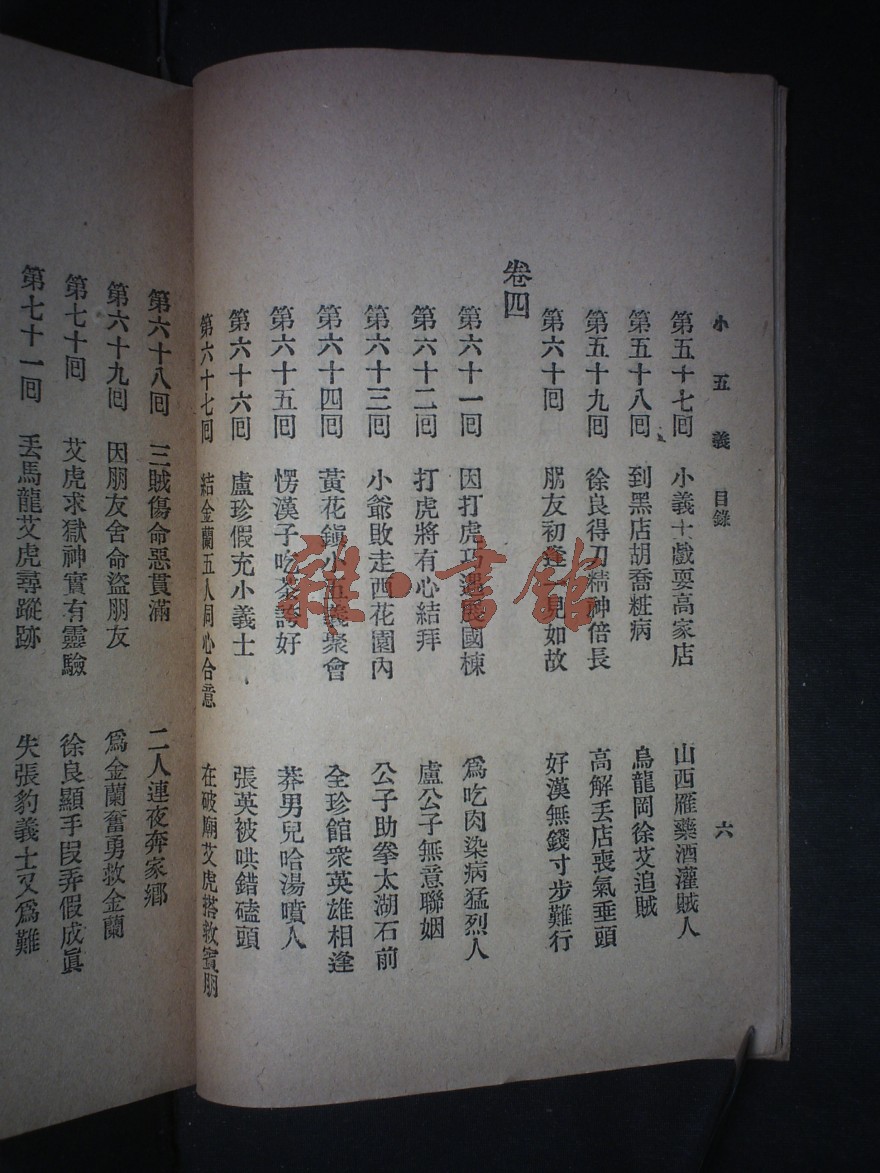 小五義 目錄 六
第五十七回 小義士戲耍高家店 山西雁藥酒灌賊人
第五十八回 到黑店胡喬粧病 烏龍岡徐艾追賊
第五十九回 徐良得刀精神倍長 高解丟店喪氣垂頭
第六十回 朋友初逢一見如故 好漢無錢寸步難行
卷四
第六十一回 因打虎巧遇展國棟 為吃肉染病猛烈人
第六十二回 打虎將有心結拜 盧公子無意聯姻
第六十三回 小爺敗走西花園內 公子助拳太湖石前
第六十四回 黃花鎮小五義衆會 全珍館衆英雄相逢
第六十五回 愣漢子吃茶誇好 莽男兒哈湯噴人
第六十六回 盧珍假充小義士 張英被哄錯磕頭
第六十七回 結金蘭五人同心合意 在破廟艾虎搭救賓朋
第六十八回 三賊傷命惡貫滿 二人連夜奔家鄉
第六十九回 因朋友舍命盜朋友 為金蘭奮勇救金蘭
第七十回 艾虎求獄神實有靈驗 徐良顯手段弄假成眞
第七十一回 丟馬龍艾虎尋蹤跡 失張豹義士又為難
雜·書館